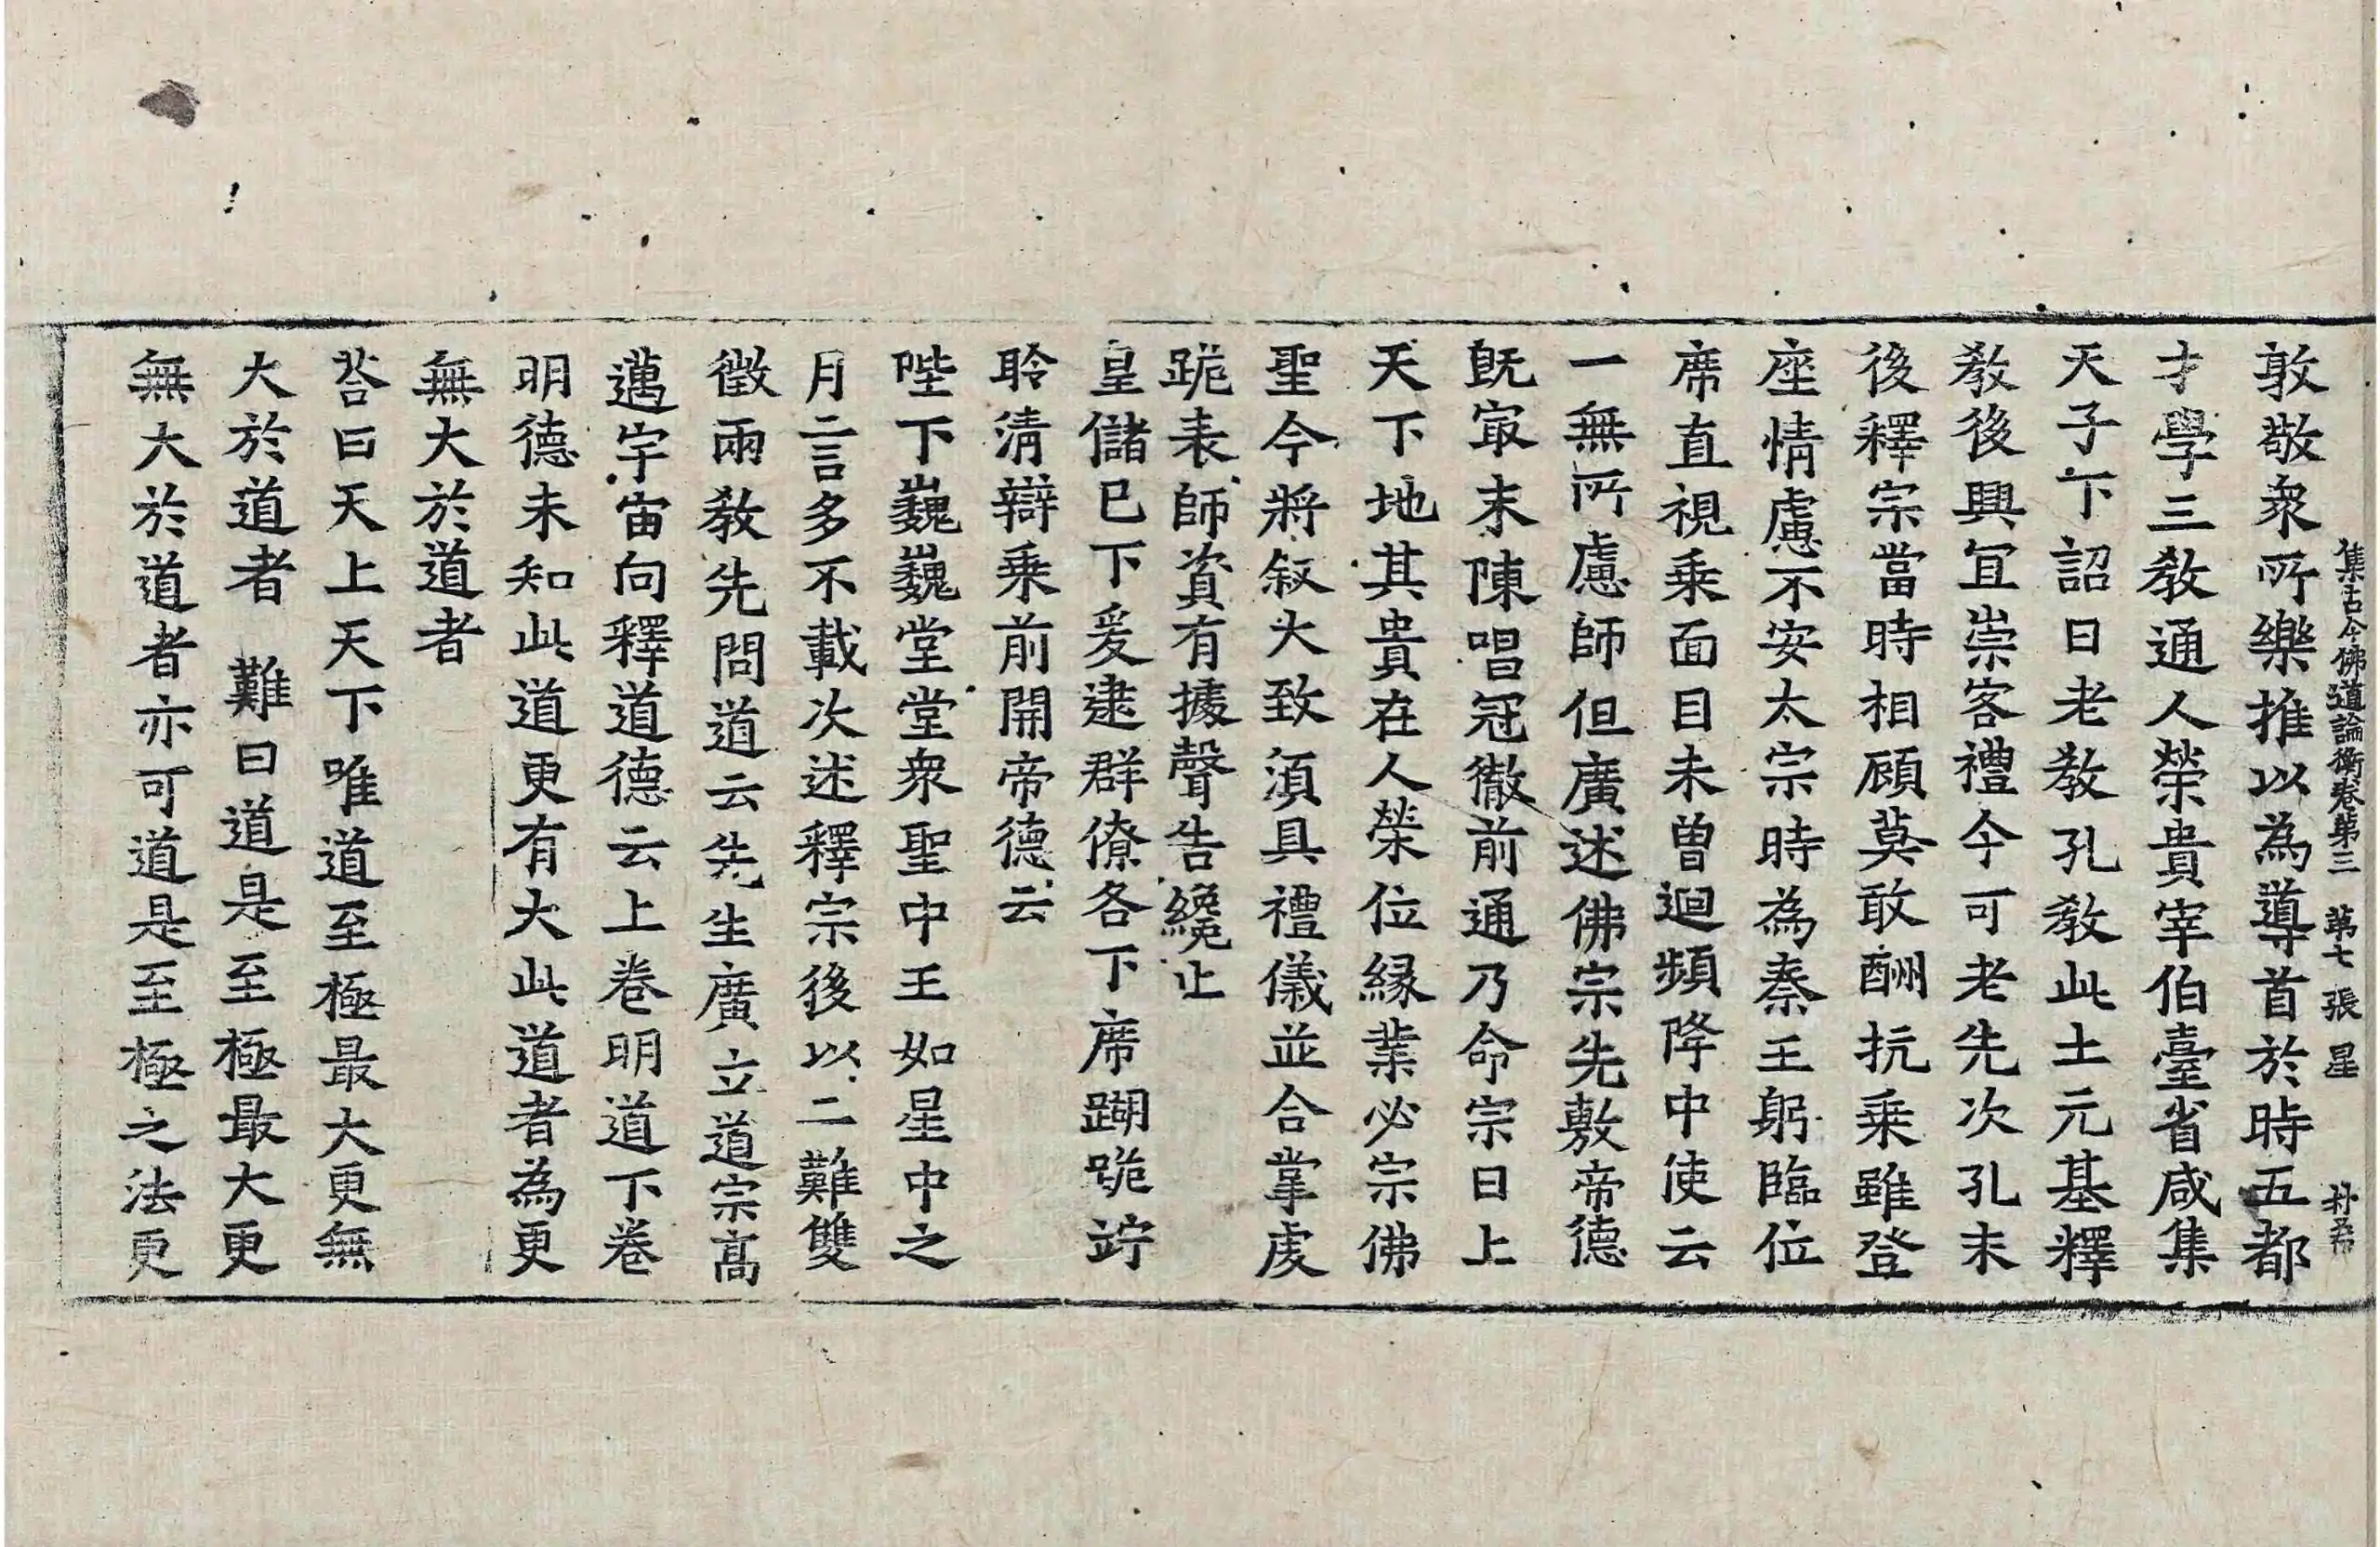 集古今佛道論衡卷第三 第七張 星
敦敬衆所樂推以為導首於時五都
才學三教通人榮貴宰伯臺省咸集
天子下詔曰老教孔教此土元基釋
教後興冝崇客禮今可老先次孔末
後釋宗當時相顧莫敢酬抗乗雖登
座情慮不安太宗時為秦王躬臨位
席直視乗面目未曽迴頻降中使云
一無所慮師但廣述佛宗先敷帝德
旣㝡末陳唱冠徹前通乃命宗曰上
天下地其貴在人榮位緣業必宗佛
聖今將叙大致須具禮儀並合掌䖏
跪表師資有據聲告纔止
皇儲已下爰逮群僚各下席䠒跪竚
聆清辯乗前開帝德云
陛下巍巍堂堂衆聖中王如星中之
月二言多不載次述釋宗後以二難雙
徵兩教先問道云先生廣立道宗高
邁宇宙向釋道德云上卷明道下卷
明德未知此道更有大此道者為更
無大於道者
荅曰天上天下唯道至極最大更無
大於道者 難曰道是至極最大更
無大於道者亦可道是至極之法更